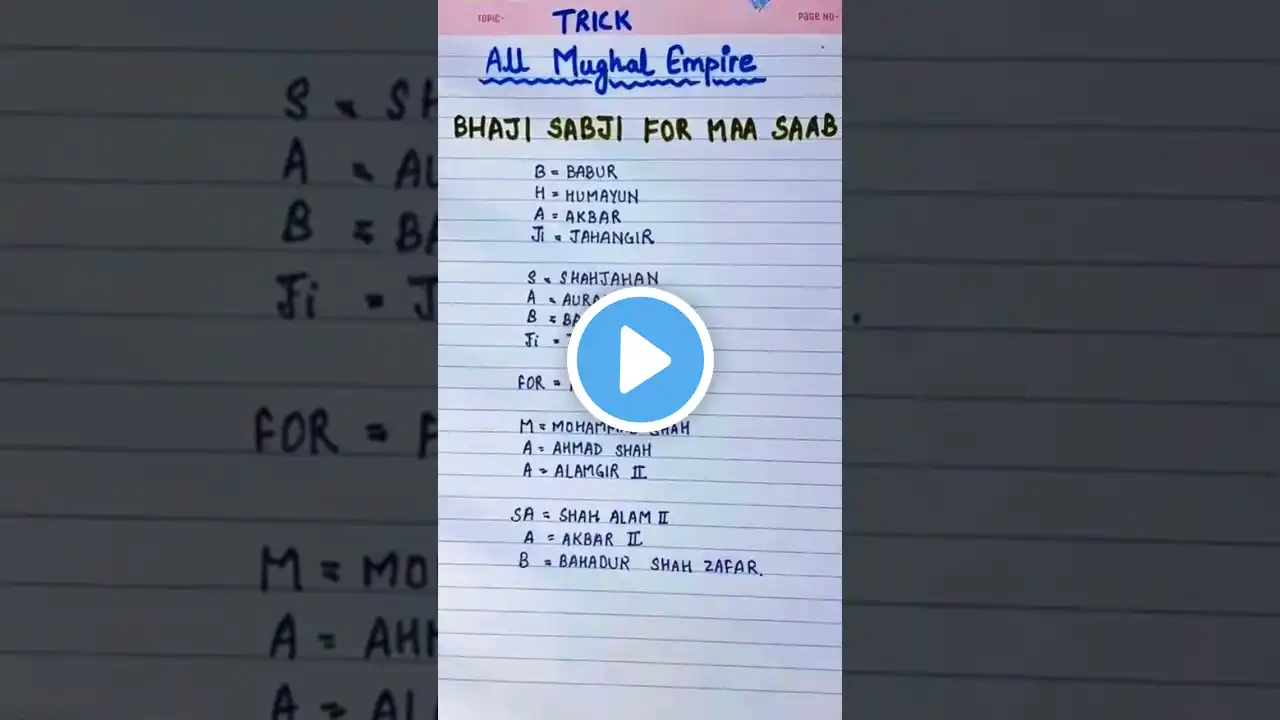 TOPIC-
PAGE NO-
TRICK
All Mughal Empire
BHAJI SABJI FOR MAA SAAB
B = BABUR
H = HUMAYUN
A = AKBAR
Ji = JAHANGIR
S = SHAHJAHAN
A =
B =
Ji =
FOR =
M = MOHAMMAD SHAH
A = AHMAD SHAH
A = ALAMGIR II
SA = SHAH ALAM II
A = AKBAR II
B = BAHADUR SHAH ZAFAR.